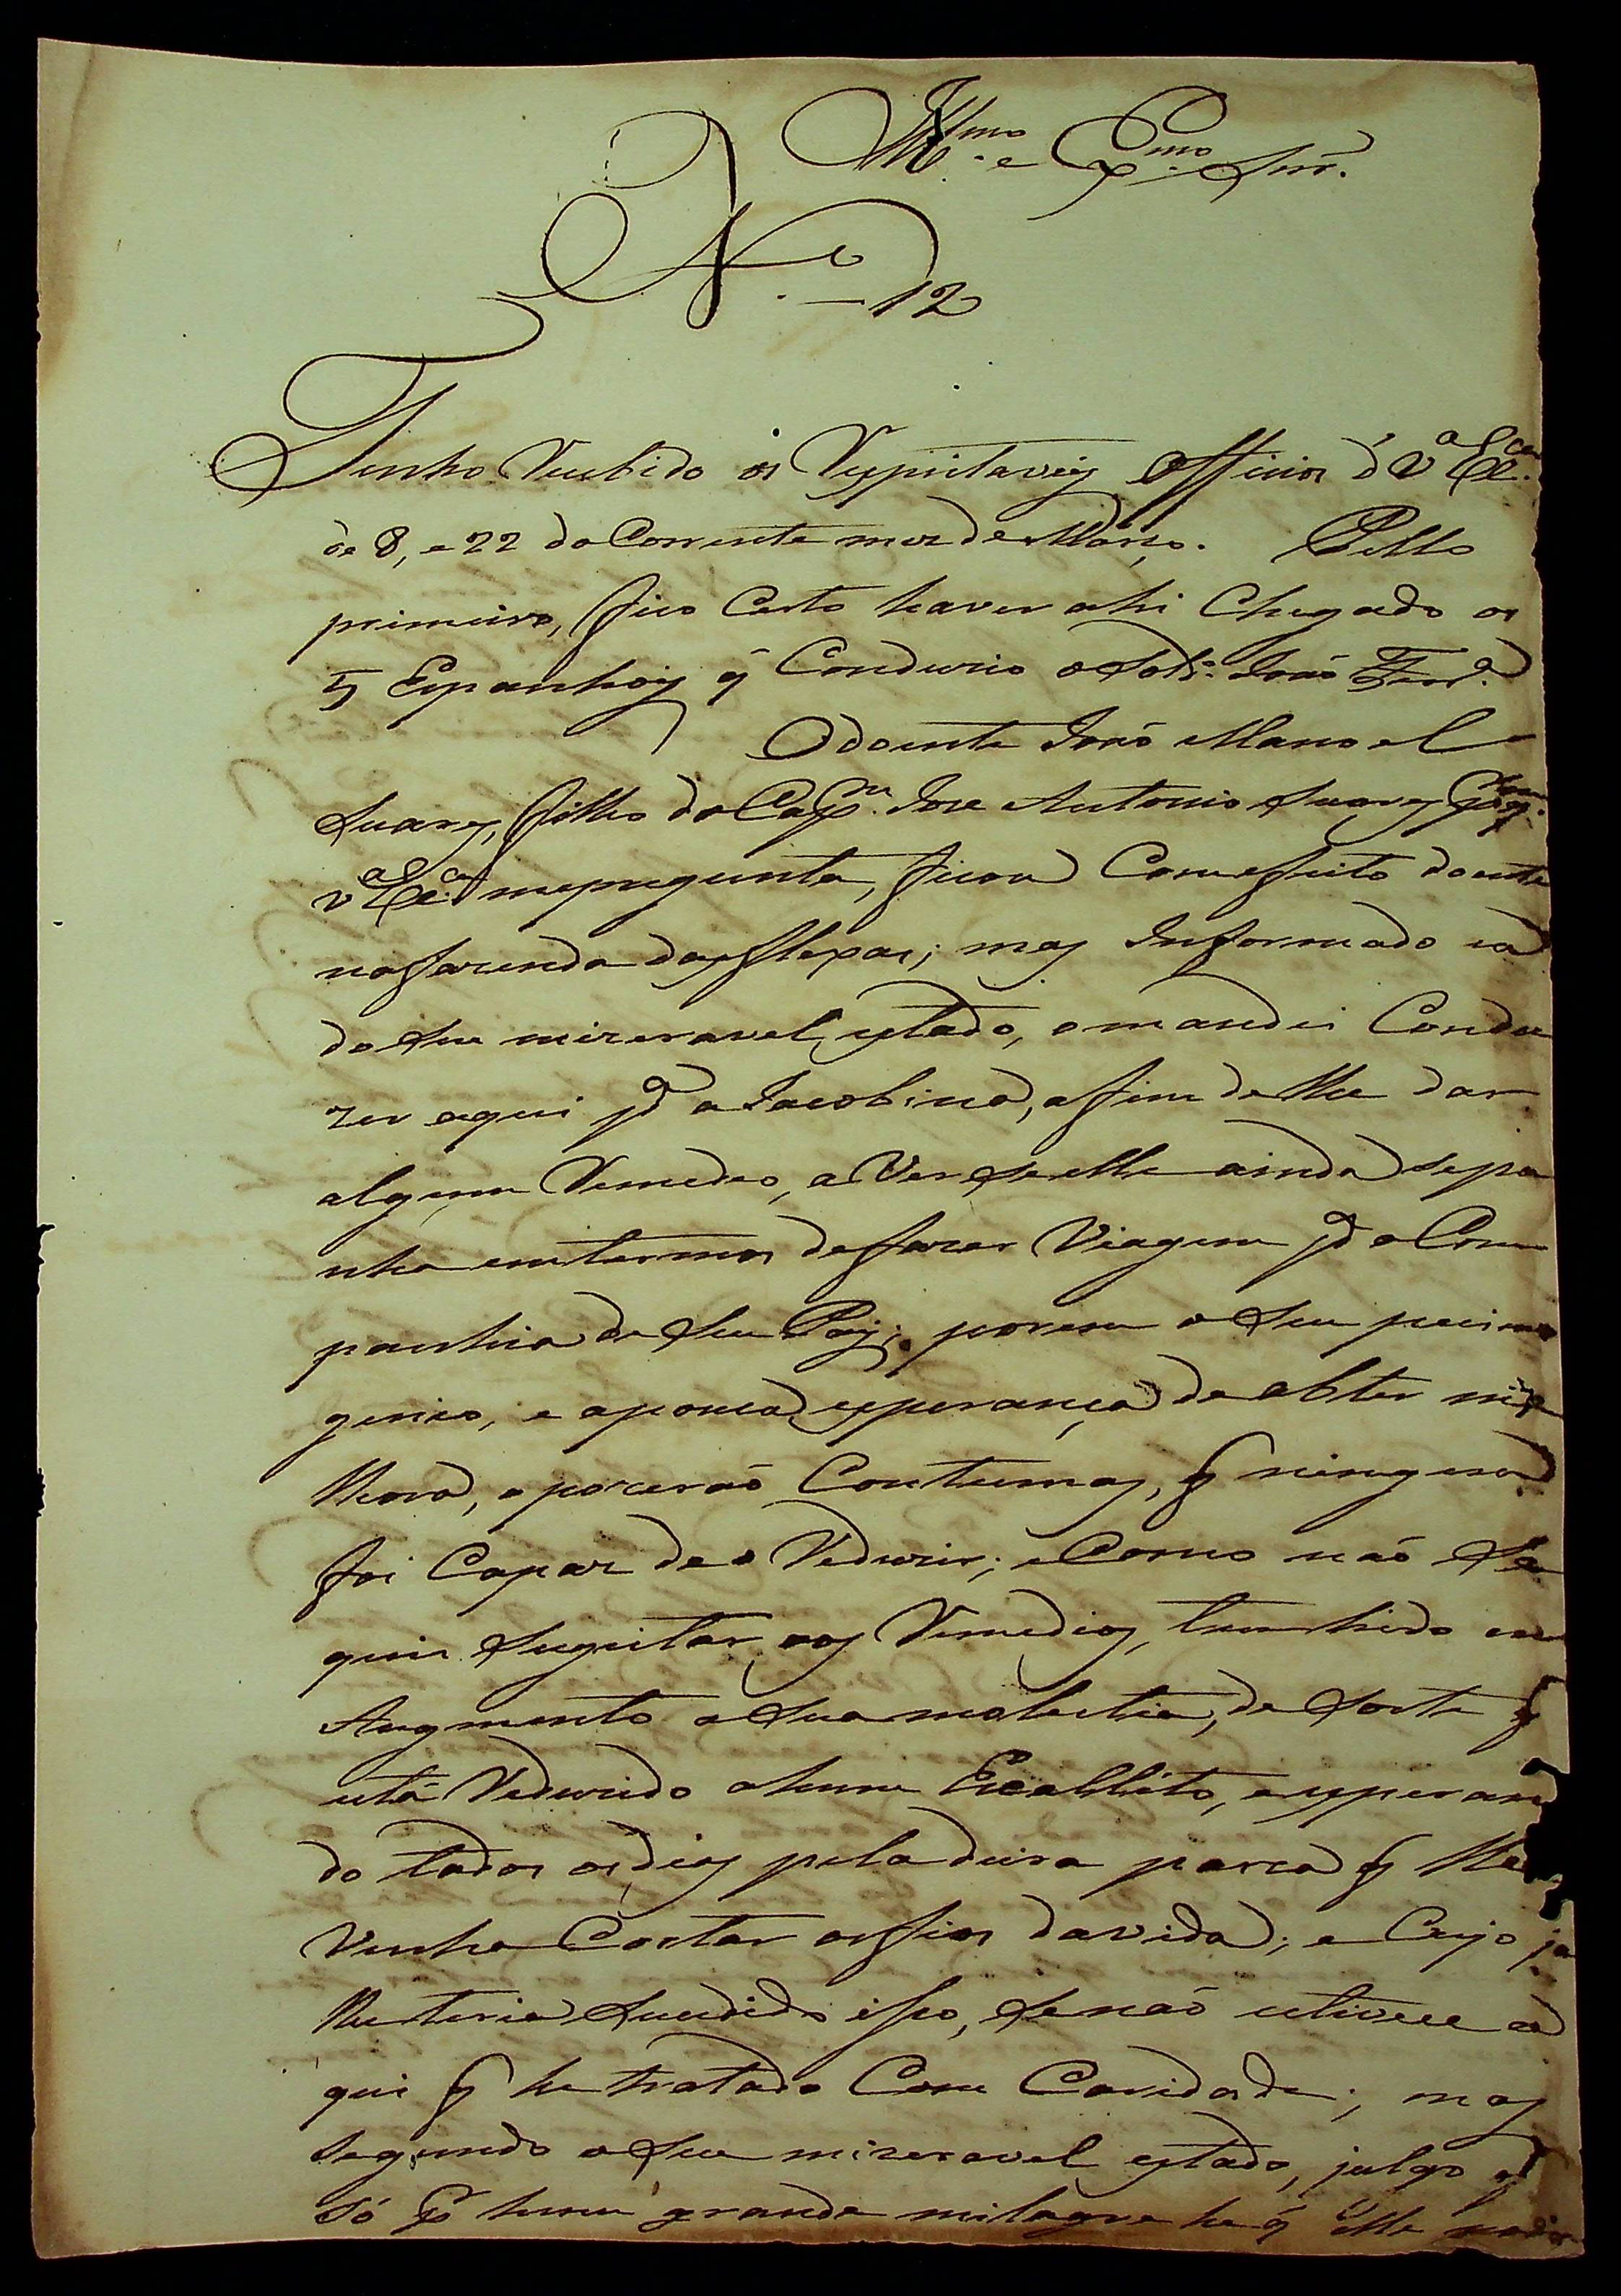 Ill.mo e Ex.mo Snr.
N.o 12
Tenho Recebido os Respeitaveis Officios d' V.a Ex.cia
de 8, e 22 do Corrente mez de Março. Pello
primeiro, fico Certo haver ahi Chegado os
5 Espanhois q̃ Conduzio o Sold.o João Ferr.a
O doente João Manoel
Suares, filho do Cap.m Jose Antonio Suares
V.a Ex.cia mepregunta, ficou Comefeito doente
nafazenda dasflexas; mas Informado eu
do Seu mizeravel estado, o mandei Condu
zir aqui p.a a Jacobina, afim delhe dar
algum Remedio, a Ver Seelle ainda sepu
nha emtermos defazer Viagem p.a a Com
panhia de Seu Pay; porem o Seu pecimo
genio, e apouca esperança de obter mi
lhora, o pozerão Contumas, q̃ ninguem
foi Capaz de o Reduzir; e Como não Se
quis Sugeitar aos Remedios, tem hido em
Augmento a Sua molestia, de Sorte q̃
está Reduzido a hum Esceleto, e esperan
do todos os dias pela dura parca q̃ lhe
Venha Cortar osfios davida; e Cujo já
lheteria Sucedido isso, Senão estivece a
qui q̃ he tratado Com Caridade; mas
Segundo o Seu mizeravel estado, julgo q̃
Só p.r hum grande milagre he q̃ elle